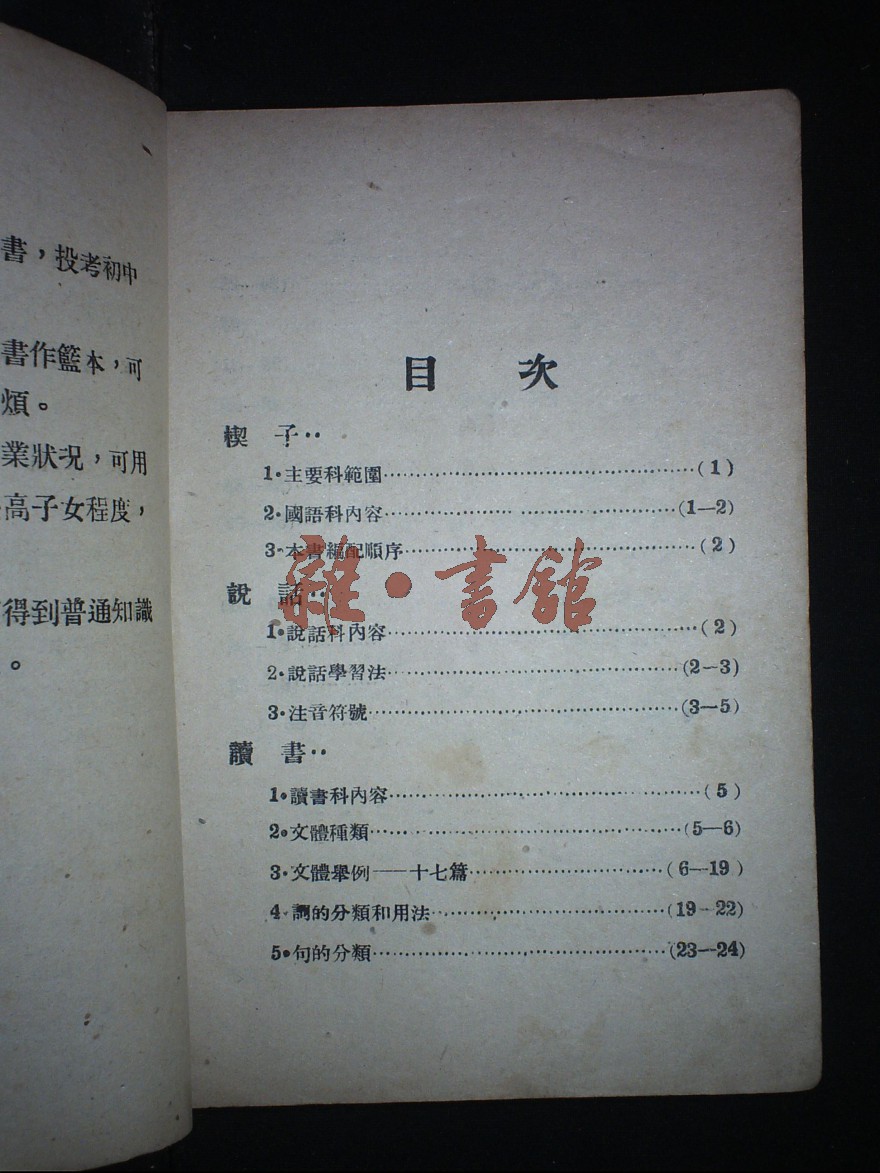 書，投考初中
書作籃本，可
煩。
業狀況，可用
高子女程度，
得到普通知識
。
目 次
楔 子··
1·主要科範圍……(1)
2·國語科內容……(1—2)
3·本書編配順序……(2)
說 話··
1·說話科內容……(2)
2·說話學習法……(2—3)
3·注音符號……(3—5)
讀 書··
1·讀書科內容……(5)
2·文體種類……(5—6)
3·文體舉例——十七篇……(6—19)
4·詞的分類和用法……(19—22)
5·句的分類……(23—24)
雜·書館